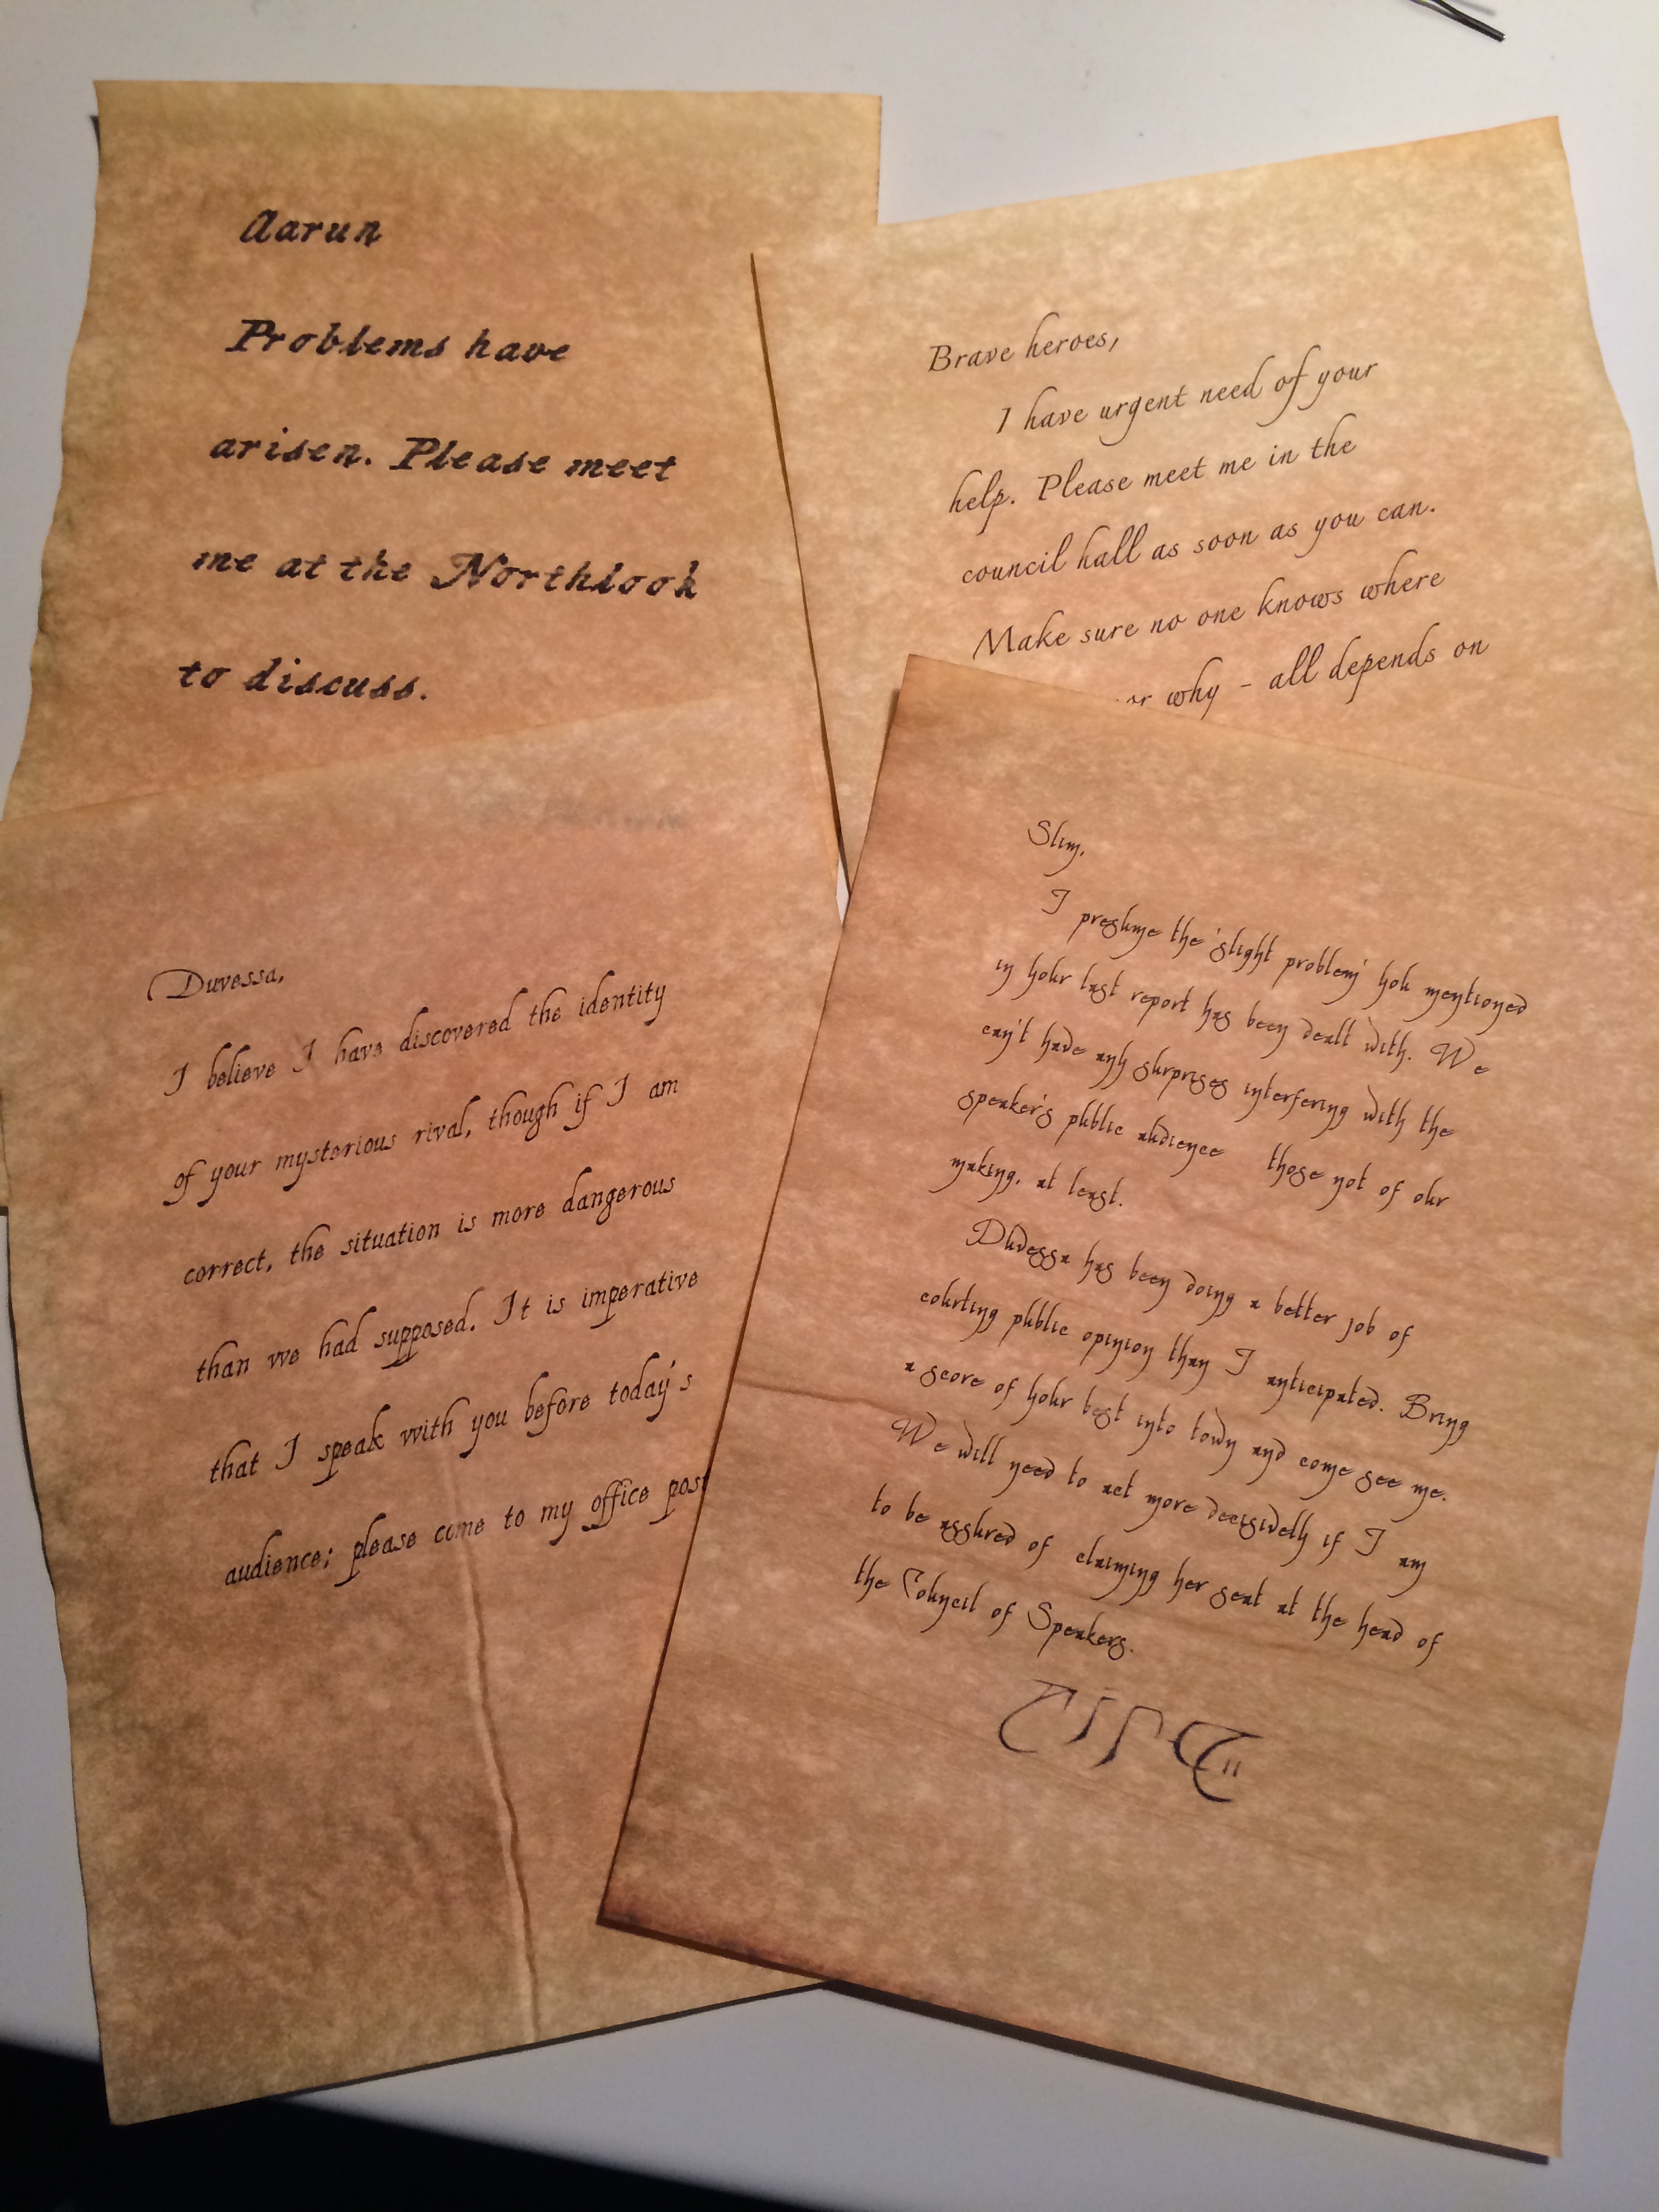 Aarun
Problems have
arisen. Please meet
me at the Northlook
to discuss.
Brave heroes,
I have urgent need of your
help. Please meet me in the
council hall as soon as you can.
Make sure no one knows where
or why - all depends on
Duvessa,
I believe I have discovered the identity
of your mysterious rival, though if I am
correct, the situation is more dangerous
than we had supposed. It is imperative
that I speak with you before today's
audience; please come to my office
Slim,
I presume the 'slight problem' you mentioned
in your last report has been dealt with. We
can't have any surprises interfering with the
speaker's public audience those not of our
making, at least.
Duvessa has been doing a better job of
courting public opinion than I anticipated. Bring
a score of your best into town and come see me.
We will need to act more decisively if I am
to be assured of claiming her seat at the head of
the Council of Speakers.